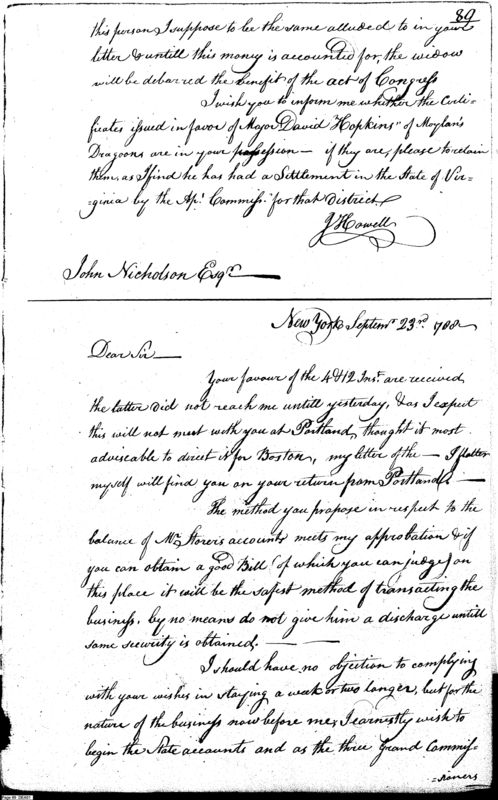 89
this person I suppose to be the same alluded to in your
letter & untill this money is accounted for, the widow
will be debarred the benefit of the act of Congress
I wish you to inform me whether the Certi=
ficates issued in favor of Major David Hopkins" of Moylan's
Dragoons are in your possession — if they are, please to retain
them, as I find he has had a Settlement in the State of Vir=
=ginia by the Ap.t Commiss.r for that District.
J Howell
John Nicholson Esq.r
New York Septem.r 23.rd 1788
Dear Sir —
Your favour of the 4 & 12 Ins.t are received
the latter did not reach me untill yesterday, & as I expect
this will not meet with you at Portland, thought it most
adviseable to direct it for Boston, my letter of the — I flatter
myself will find you on your return from Portland. —
The method you propose in respect to the
balance of Mr. Storer's accounts meets my approbation & if
you can obtain a good Bill (of which you can judge) on
this place it will be the safest method of transacting the
business. by no means do not give him a discharge untill
some security is obtained. —
I should have no objection to complying
with your wishes in staying a week or two longer, but for the
nature of the business now before me, I earnestly wish to
begin the State accounts and as the three Grand Commis=
=sioners